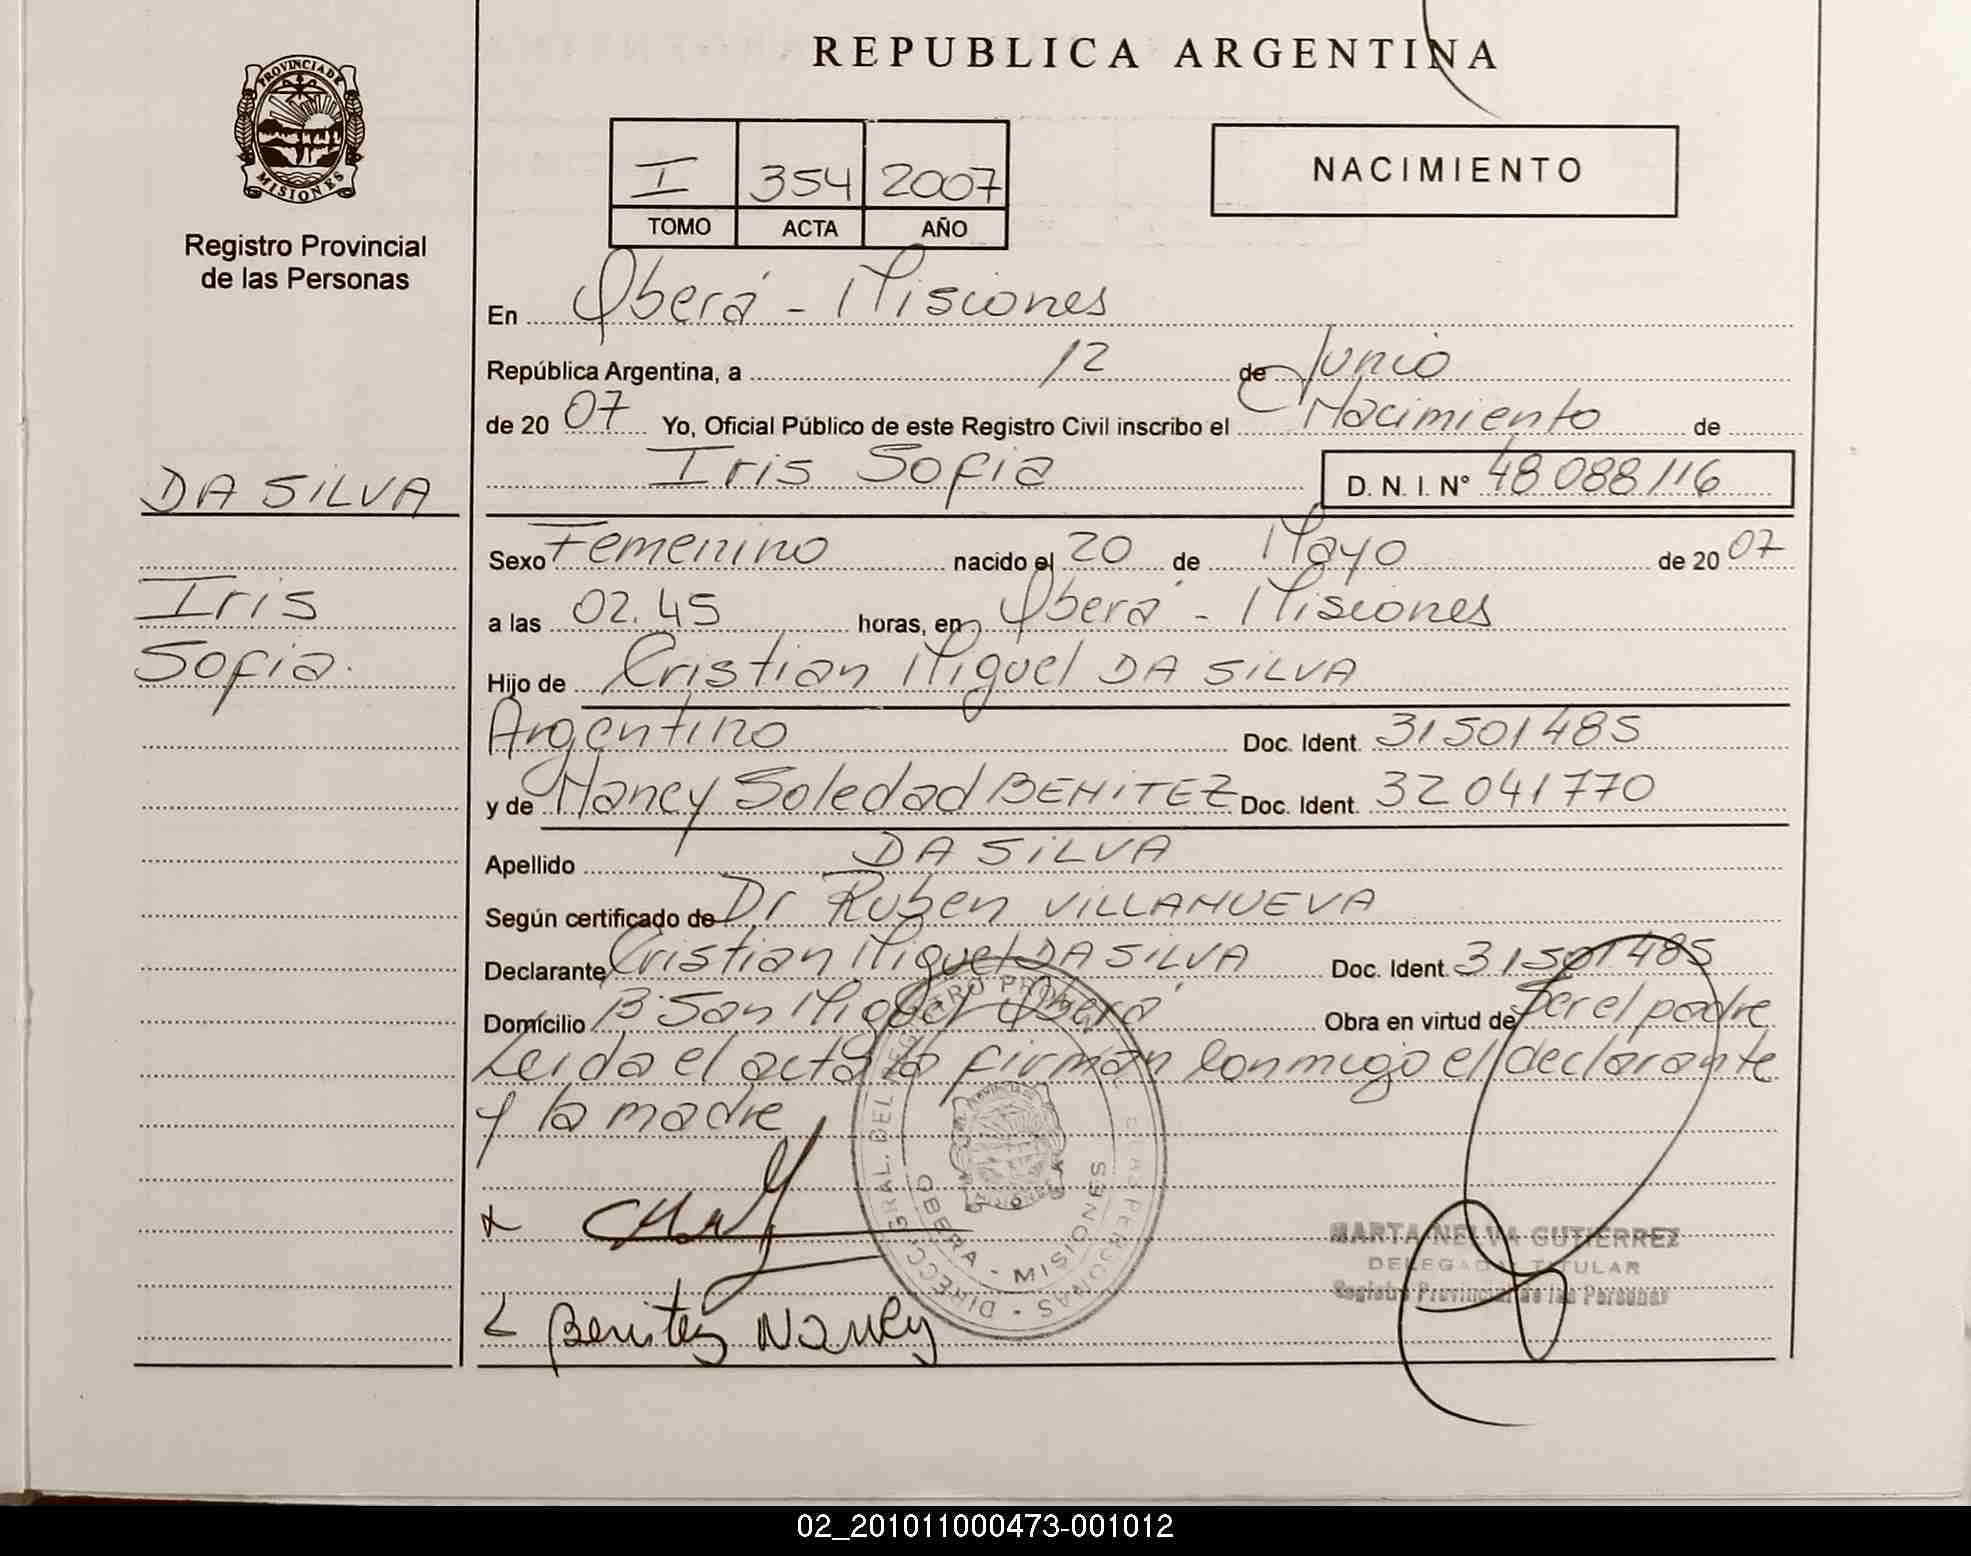 REPUBLICA ARGENTINA
PROVINCIA DE
MISIONES
Registro Provincial
de las Personas
I 354 2007
TOMO ACTA AÑO
NACIMIENTO
En Oberá - Misiones
República Argentina, a 12 de Junio
de 2007 Yo, Oficial Público de este Registro Civil inscribo el Nacimiento de
Iris Sofia D. N. I. N° 48 088 116
DA SILVA
Iris
Sofia.
Sexo Femenino nacido el 20 de Mayo de 2007
a las 02.45 horas, en Oberá - Misiones
Hijo de Cristian Miguel DA SILVA
Argentino Doc. Ident. 31501485
y de Nancy Soledad BENITEZ Doc. Ident. 32041770
Apellido DA SILVA
Según certificado de Dr Ruben VILLANUEVA
Declarante Cristian Miguel DA SILVA Doc. Ident. 31501485
Domicilio B° San Miguel Oberá Obra en virtud de Ser el padre
Leida el acta la firman conmigo el declarante
y la madre
DIRECC. GRAL. DEL REGISTRO PROV. DE LAS PERSONAS
OBERA - MISIONES
MARTA NELVA GUTIERREZ
DELEGADA TITULAR
Registro Provincial de las Personas
Benitez Nancy
02_201011000473-001012